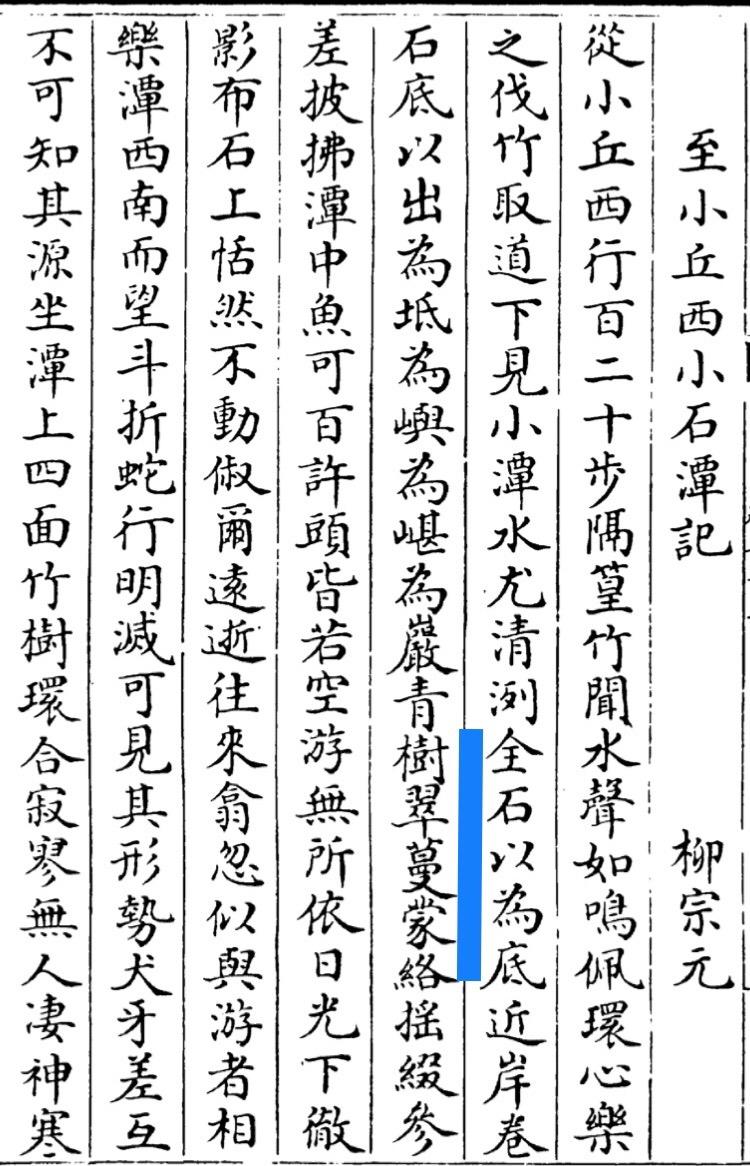 至小丘西小石潭記 柳宗元
從小丘西行百二十步隔篁竹聞水聲如鳴佩環心樂
之伐竹取道下見小潭水尤清洌全石以為底近岸卷
石底以出為坻為嶼為嵁為巖青樹翠蔓蒙絡揺綴參
差披拂潭中魚可百許頭皆若空游無所依日光下徹
影布石上恬然不動俶爾遠逝往來翕忽似與游者相
樂潭西南而望斗折蛇行明滅可見其形勢犬牙差互
不可知其源坐潭上四面竹樹環合寂寥無人淒神寒